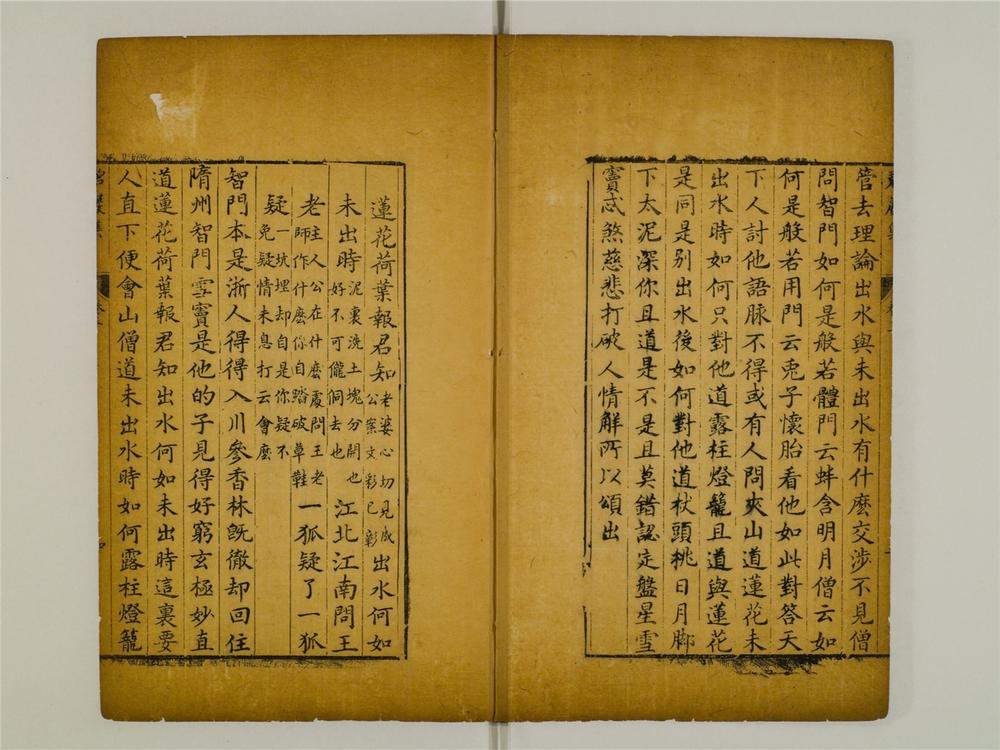 管去理論出水與未出水有什麽交渉不見僧
問智門如何是般若體門云蚌含明月僧云如
何是般若用門云兎子懷胎看他如此對答天
下人討他語脉不得或有人問夾山道蓮花未
出水時如何只對他道露柱燈籠且道與蓮花
是同是别出水後如何對他道杖頭桃日月脚
下太泥深你且道是不是且莫錯認定盤星雪
竇忒煞慈悲打破人情解所以頌出
蓮花荷葉報君知老婆心切見成公案文彩已彰出水何如
未出時泥裏洗土塊分開也好不可儱侗去也江北江南問王
老主人公在什麽處問王老師作什麽你自踏破草鞋一狐疑了一狐
疑一坑埋却自是你疑不免疑情未息打云會麽
智門本是浙人得得入川參香林旣徹却回住
隋州智門雪竇是他的子見得好窮玄極妙直
道蓮花荷葉報君知出水何如未出時這裏要
人直下便會山僧道未出水時如何露柱燈籠